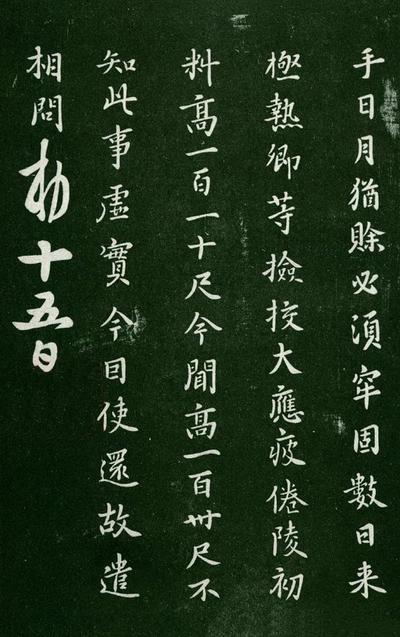 手日月猶賒必須牢固數日来
極熱卿等撿挍大應疲倦陵初
料高一百一十尺今聞高一百卅尺不
知此事虛實今因使還故遣
相問勅十五日